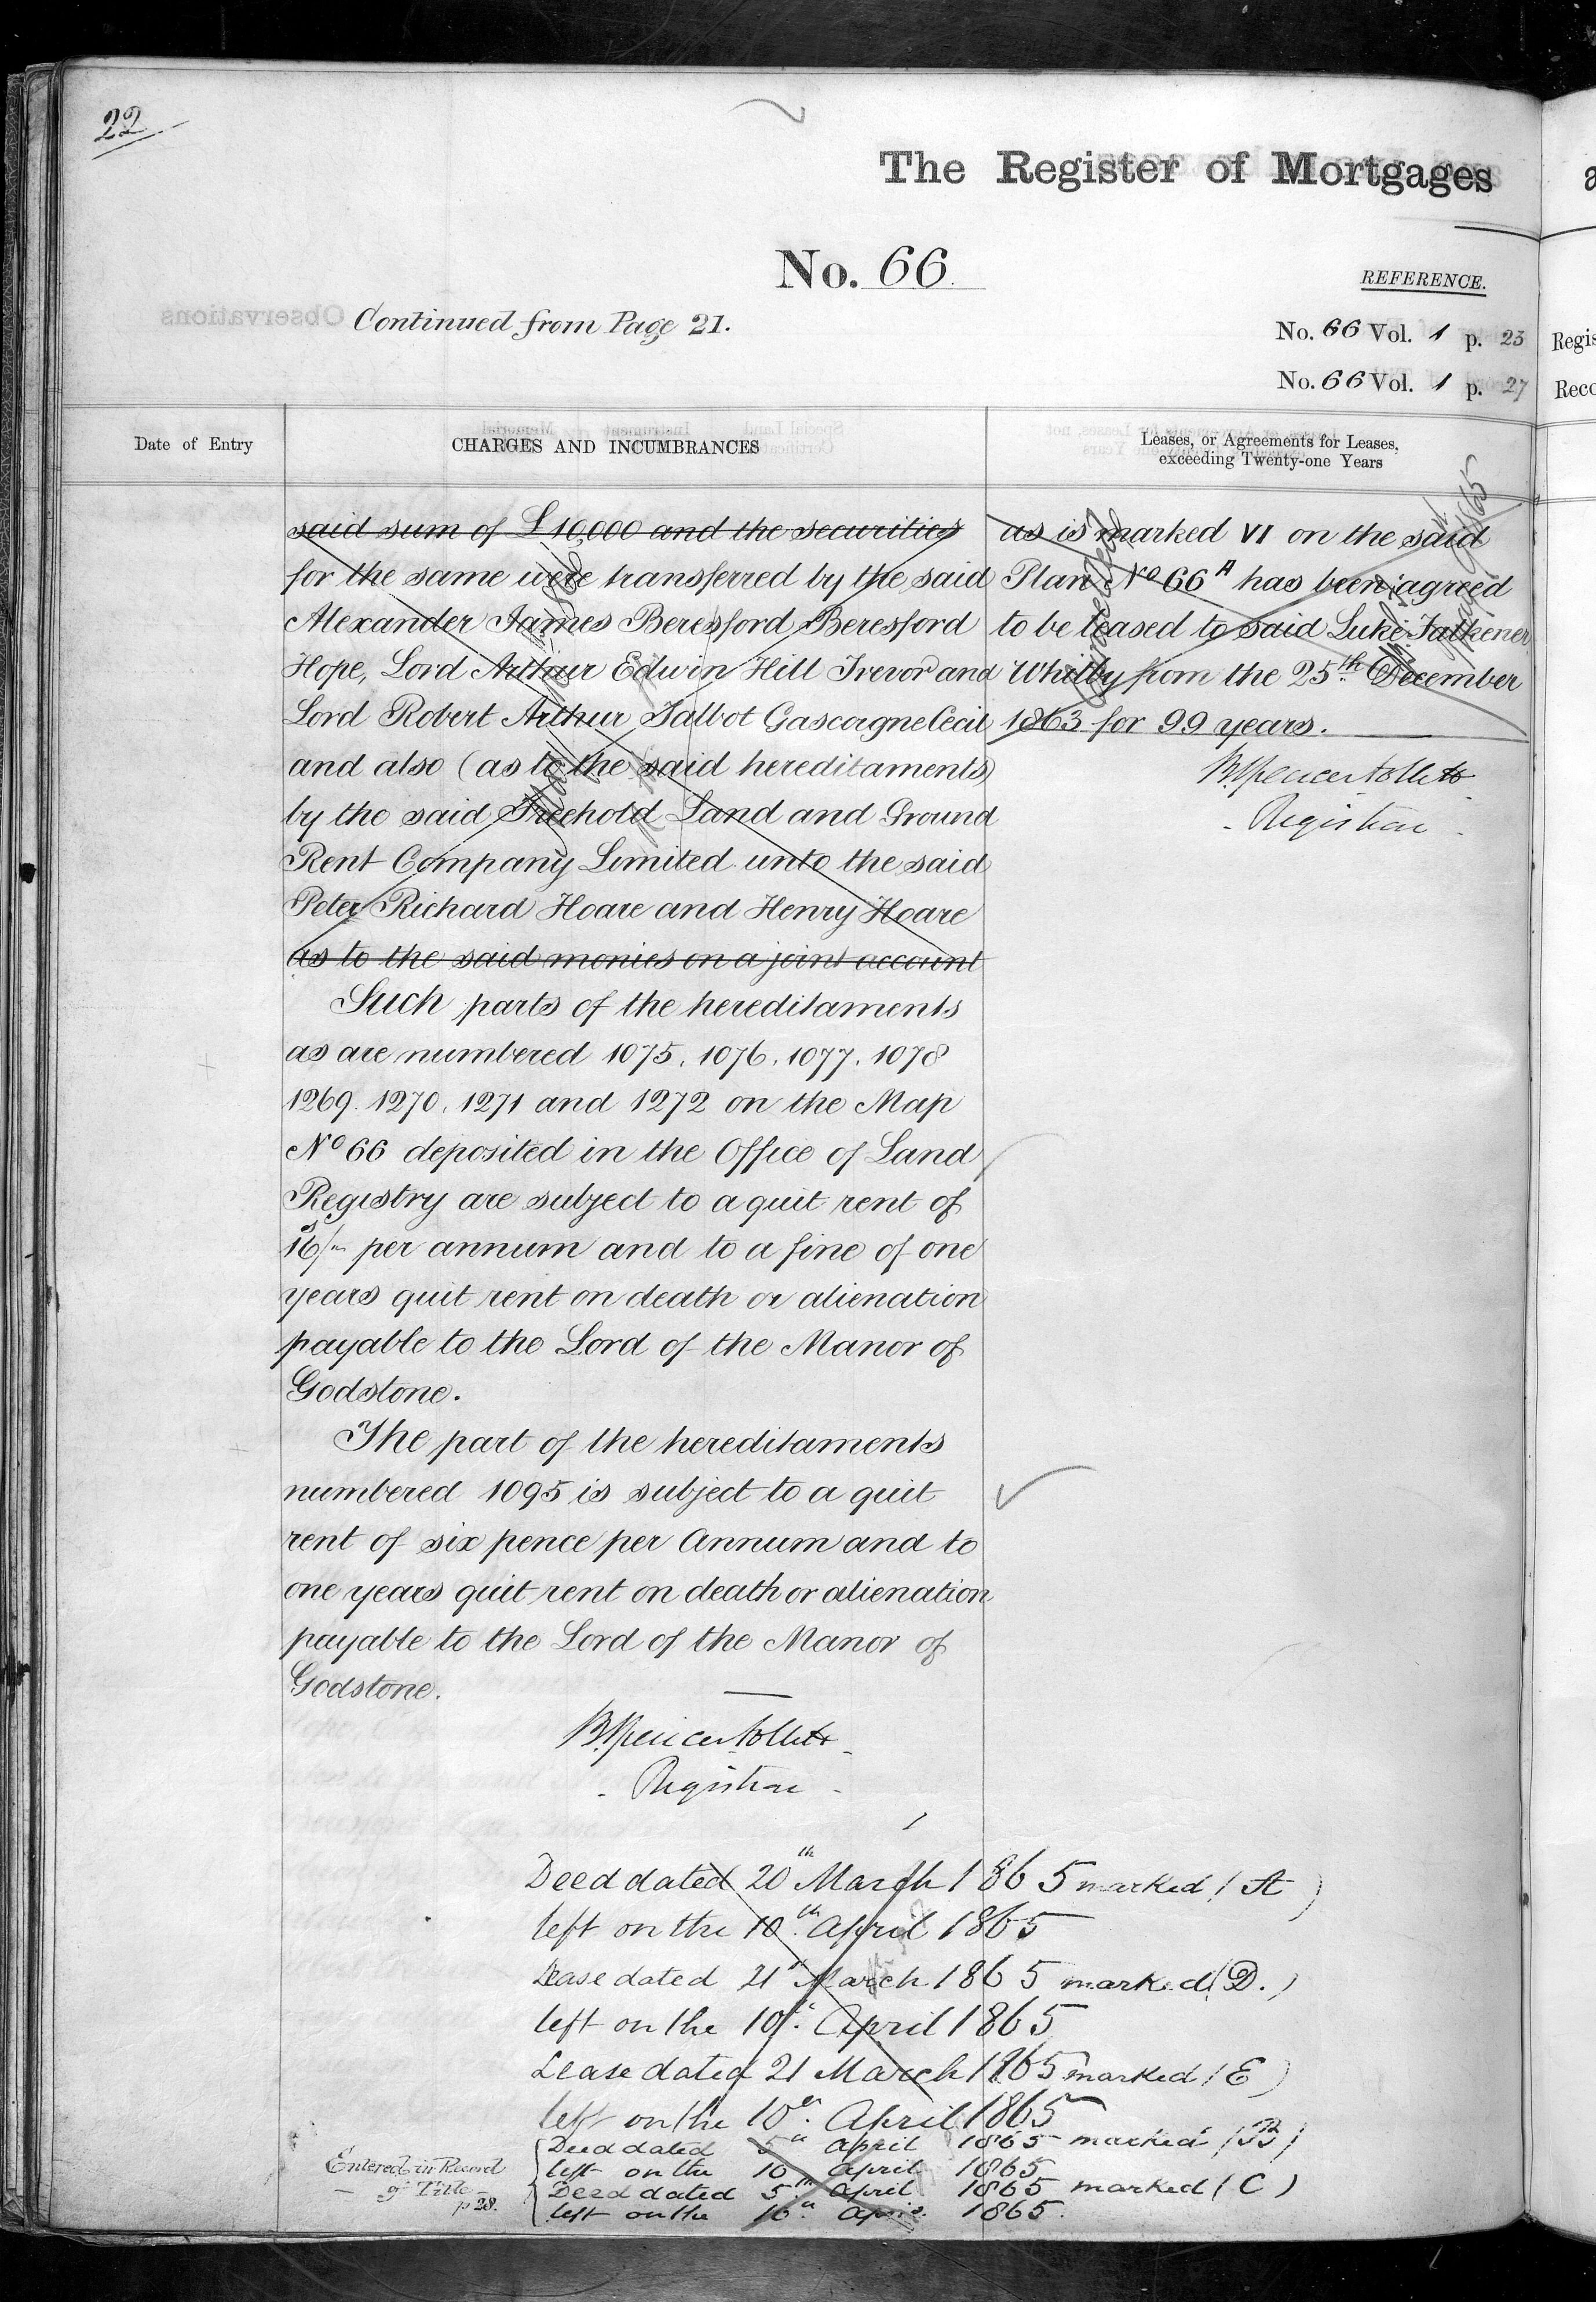 22
The Register of Mortgages
No. 66
REFERENCE.
Continued from Page 21.
No. 66 Vol. 1 p. 23
No. 66 Vol. 1 p. 27
Regis
Reco
Date of Entry
CHARGES AND INCUMBRANCES
Leases, or Agreements for Leases,
exceeding Twenty-one Years
said sum of £10,000 and the securities
for the same were transferred by the said
Alexander James Beresford Beresford
Hope, Lord Arthur Edwin Hill Trevor and
Lord Robert Arthur Talbot Gascoigne Cecil
and also (as to the said hereditaments)
by the said Freehold Land and Ground
Rent Company Limited unto the said
Peter Richard Hoare and Henry Hoare
as to the said monies on a joint account
Such parts of the hereditaments
as are numbered 1075, 1076, 1077, 1078
1269. 1270, 1271 and 1272 on the Map
No 66 deposited in the Office of Land
Registry are subject to a quit rent of
16s/- per annum and to a fine of one
years quit rent on death or alienation
payable to the Lord of the Manor of
Godstone.
The part of the hereditaments
numbered 1095 is subject to a quit
rent of six pence per Annum and to
one years quit rent on death or alienation
payable to the Lord of the Manor of
Godstone.
B. Spencer Follett
Registrar
as is marked VI on the said
Plan No 66A has been agreed
to be leased to said Luke Falkener
Whitby from the 25th December
1863 for 99 years.
B. Spencer Follett
Registrar
Cancelled
1865
Deed dated 20th March 1865 marked (A)
left on the 10th April 1865
Lease dated 21st March 1865 marked (D.)
left on the 10th April 1865
Lease dated 21 March 1865 marked (E)
left on the 10th April 1865
Deed dated 5th April 1865 marked (B)
left on the 10 April 1865
Deed dated 5th April 1865 marked (C)
left on the 10th April 1865.
Entered in Record
of Title
p 28.